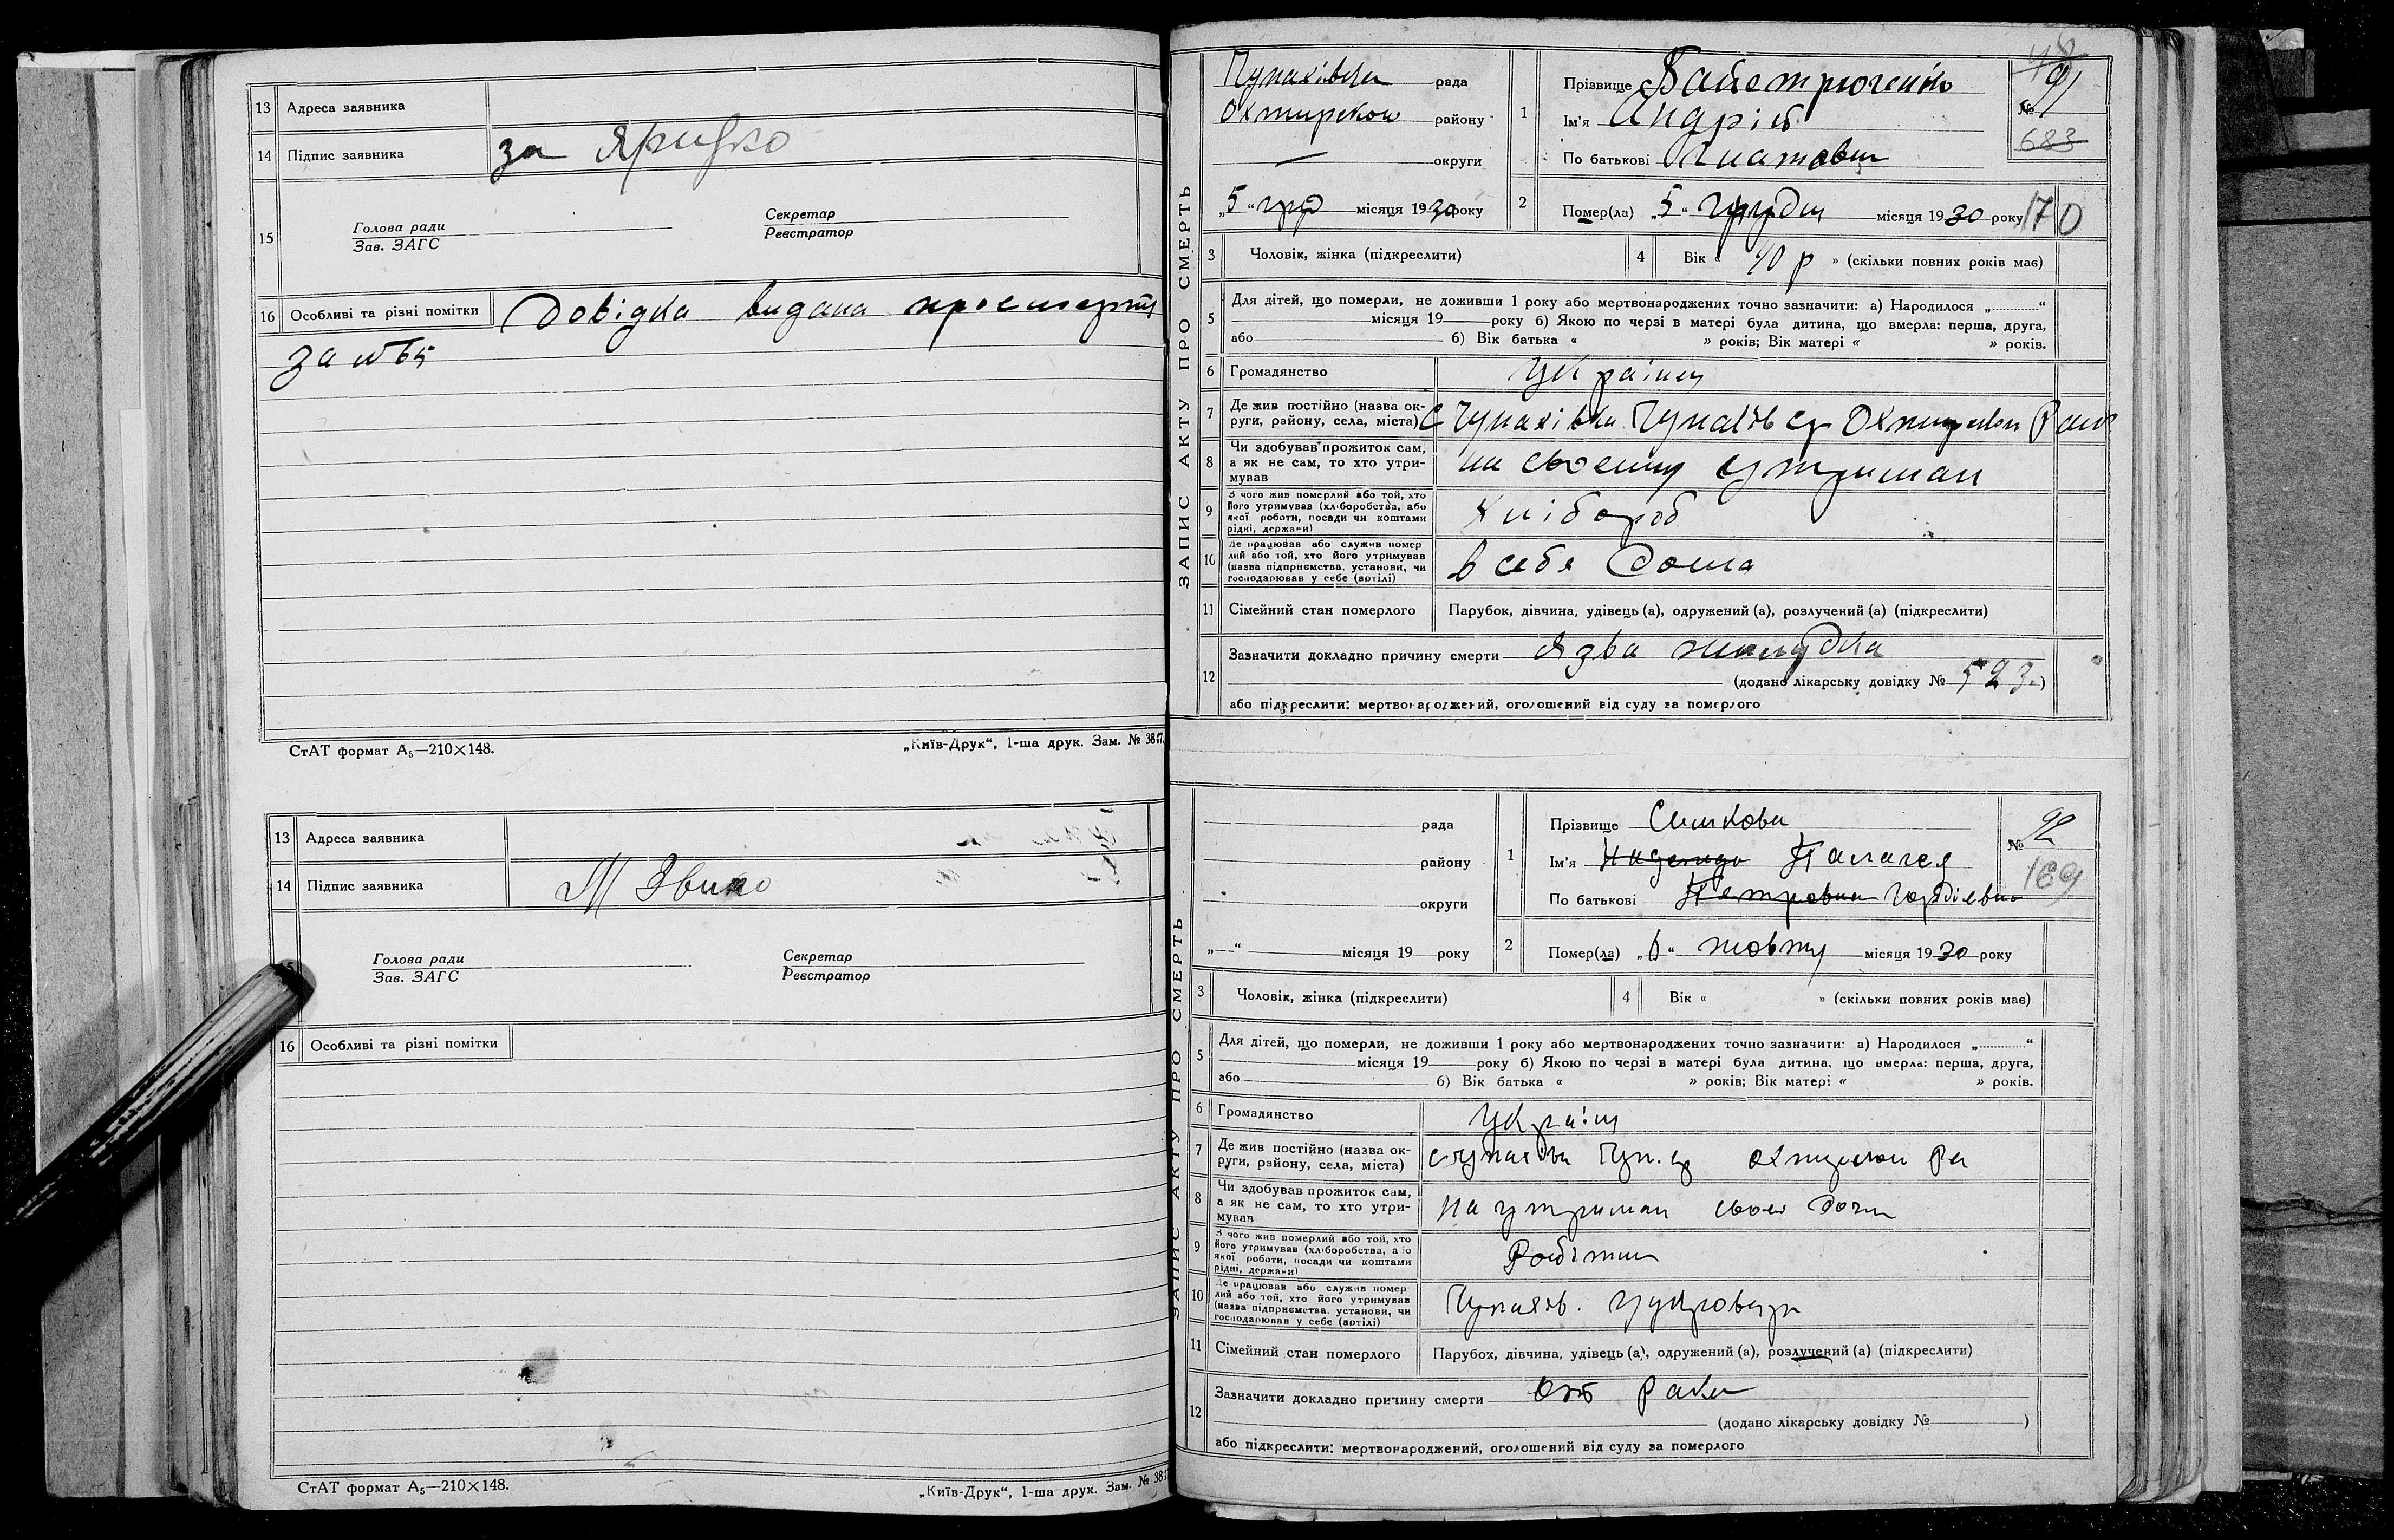 13 Адреса заявника
14 Підпис заявника за
15 Голова ради Секретар
Зав. ЗАГС Реєстратор
16 Особливі та різні помітки Довідка видана про смерть
за №65
СтАТ формат А₅—210×148. „Київ-Друк“, 1-ша друк. Зам. № 3847.
13 Адреса заявника
14 Підпис заявника
Голова ради Секретар
Зав. ЗАГС Реєстратор
16 Особливі та різні помітки
СтАТ формат А₅—210×148. „Київ-Друк“, 1-ша друк. Зам. №
ЗАПИС АКТУ ПРО СМЕРТЬ
рада
району
— округи
„5“ грд місяця 1930 року
1 Прізвище
Ім'я Андрій
По батькові Гнатович
№ 91
683
2 Помер(ла) „5“ грудн місяця 1930 року 170
3 Чоловік, жінка (підкреслити) 4 Вік « 40 р » (скільки повних років має)
5 Для дітей, що померли, не доживши 1 року або мертвонароджених точно зазначити: а) Народилося „............“
місяця 19 року б) Якою по черзі в матері була дитина, що вмерла: перша, друга,
або б) Вік батька « » років; Вік матері « » років.
6 Громадянство Україн
7 Де жив постійно (назва ок-
руги, району, села, міста) С Чупахівка
8 Чи здобував прожиток сам,
а як не сам, то хто утри-
мував на своему утриман
9 З чого жив померлий або той, хто
його утримував (хліборобства, або
якої роботи, посади чи коштами
рідні, держави) Хлібороб
10 Де працював або служив помер
лий або той, хто його утримував
(назва підприємства, установи, чи
господарював у себе (артілі) в себе дома
11 Сімейний стан померлого Парубок, дівчина, удівець (а), одружений (а), розлучений (а) (підкреслити)
12 Зазначити докладно причину смерти Язва желудка
(додано лікарську довідку № 523.)
або підкреслити: мертвонароджений, оголошений від суду за померлого
ЗАПИС АКТУ ПРО СМЕРТЬ
рада
району
округи
„—“ місяця 19 року
1 Прізвище
Ім'я Палагея
По батькові Петровна Гордіевна
№ 92
169
2 Помер(ла) місяця 1930 року
3 Чоловік, жінка (підкреслити) 4 Вік « » (скільки повних років має)
5 Для дітей, що померли, не доживши 1 року або мертвонароджених точно зазначити: а) Народилося „............“
місяця 19 року б) Якою по черзі в матері була дитина, що вмерла: перша, друга,
або б) Вік батька « » років; Вік матері « » років.
6 Громадянство Україн
7 Де жив постійно (назва ок-
руги, району, села, міста)
8 Чи здобував прожиток сам,
а як не сам, то хто утри-
мував на утриман своеі дочки
9 З чого жив померлий або той, хто
його утримував (хліборобства, або
якої роботи, посади чи коштами
рідні, держави)
10 Де працював або служив помер
лий або той, хто його утримував
(назва підприємства, установи, чи
господарював у себе (артілі)
11 Сімейний стан померлого Парубок, дівчина, удівець (а), одружений (а), розлучений (а) (підкреслити)
12 Зазначити докладно причину смерти От рака
(додано лікарську довідку № )
або підкреслити: мертвонароджений, оголошений від суду за померлого